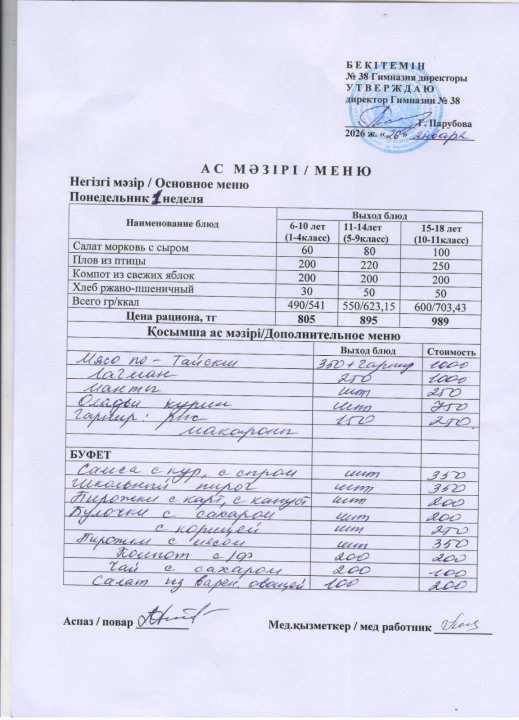 БЕКІТЕМІН
№ 38 Гимназия директоры
УТВЕРЖДАЮ
директор Гимназии № 38
Г. Парубова
2026 ж. «26» января
АС МӘЗІРІ / МЕНЮ
Негізгі мәзір / Основное меню
Понедельник 1 неделя
Наименование блюд Выход блюд
6-10 лет (1-4класс) 11-14лет (5-9класс) 15-18 лет (10-11класс)
Салат морковь с сыром 60 80 100
Плов из птицы 200 220 250
Компот из свежих яблок 200 200 200
Хлеб ржано-пшеничный 30 50 50
Всего гр/ккал 490/541 550/623,15 600/703,43
Цена рациона, тг 805 895 989
Қосымша ас мәзірі/Дополнительное меню
Выход блюд Стоимость
Мясо по-Тайски 350+гарнир 1000
Лагман 250 1000
Манты шт 250
Оладьи курин шт 750
Гарнир: рис 150 250
макароны
БУФЕТ
Самса с кур, с сыром шт 350
Школьный пирог шт 350
Пирожки с карт, с капуст шт 200
Булочки с сахаром шт 200
с корицей шт 250
Пирожки с мясом шт 350
Компот с/ф 200 200
Чай с сахаром 200 100
Салат из варен. овощей 100 200
Аспаз / повар
Мед.қызметкер / мед работник